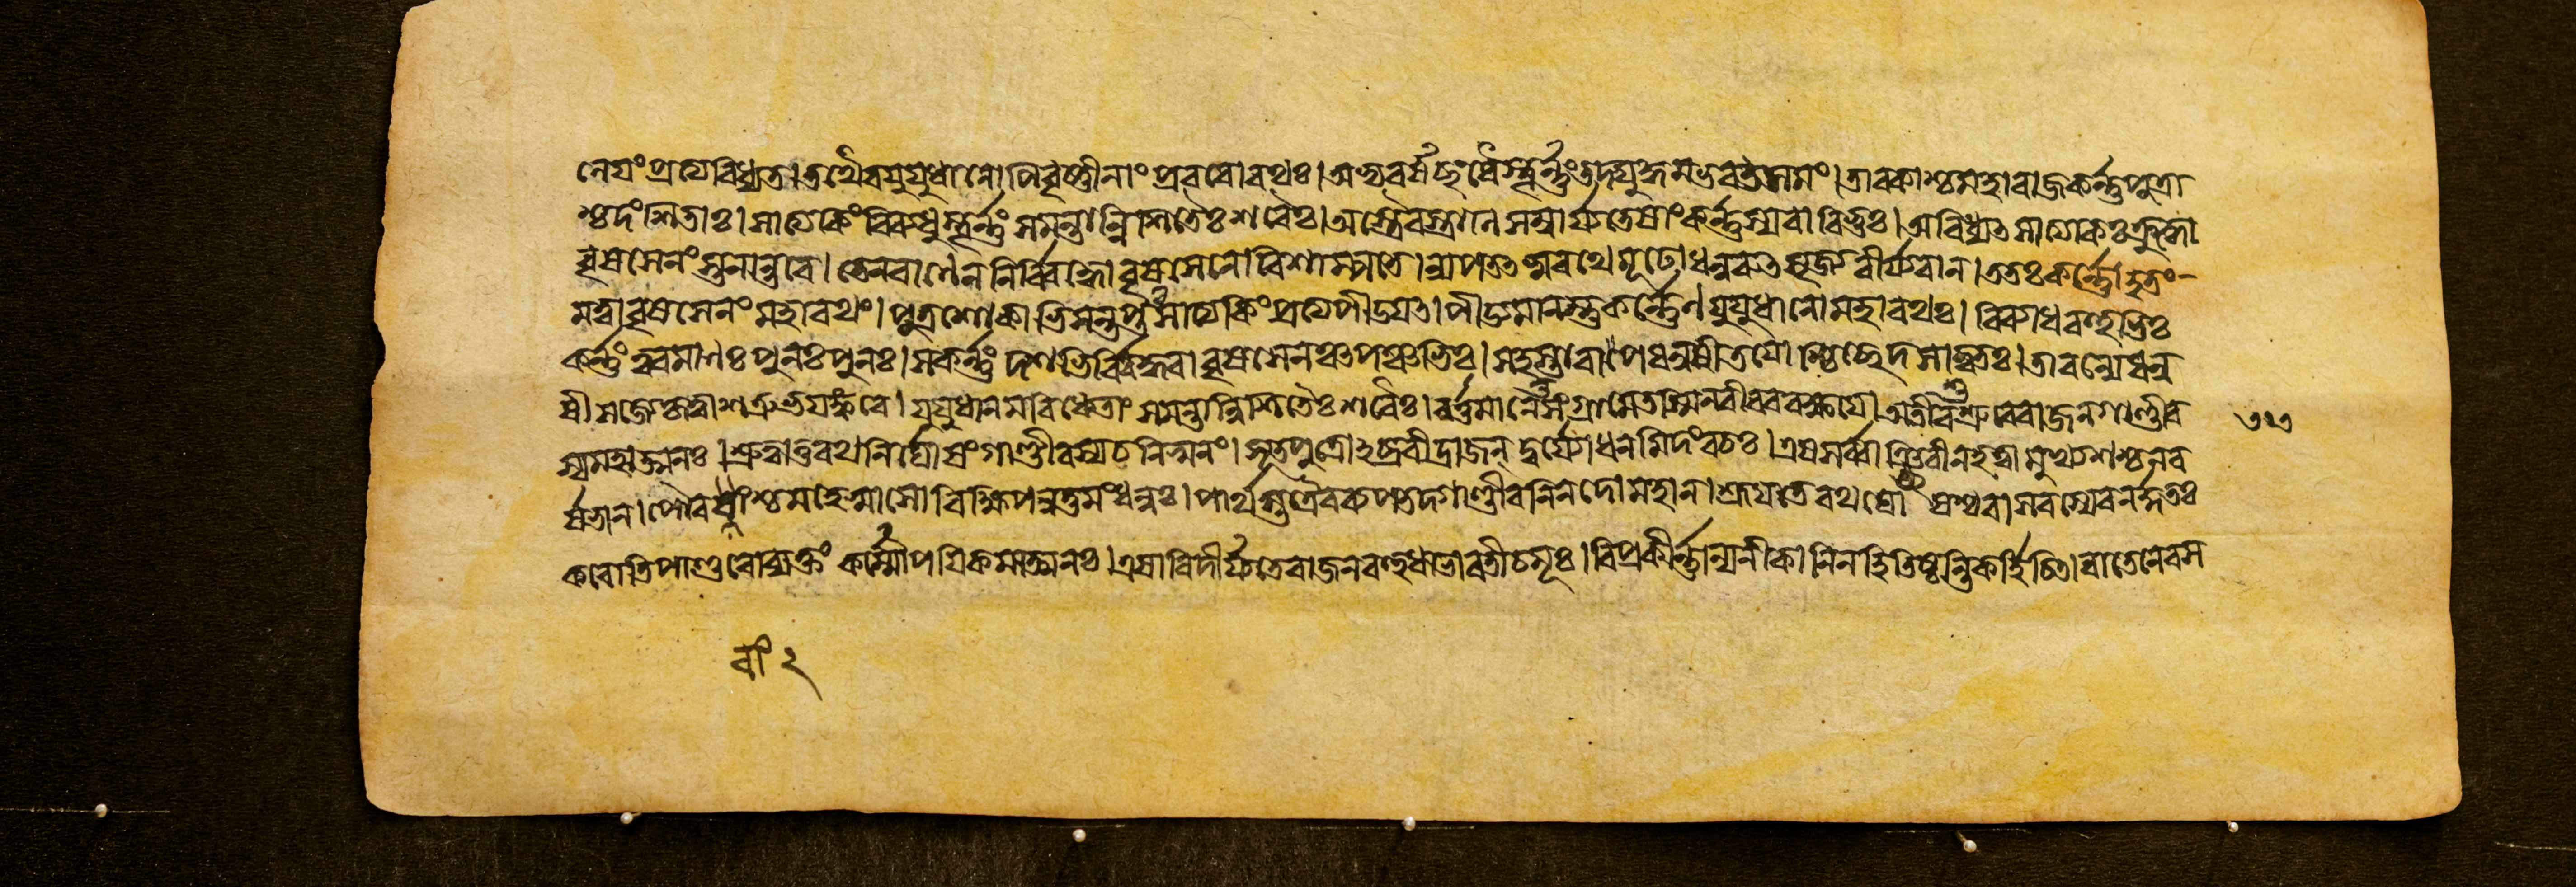 নেয়ং প্রত্যবিধ্যত। তথৈব যুযুধানোপি বৃষ্ণীনাং প্রবরো রথঃ। অভ্যবর্ষচ্ছরৈস্তূর্ণং তদ্যুদ্ধমভবৎসমং। তাবকাশ্চ মহারাজ কর্ণপুত্রা
শ্চ দংশিতাঃ। সাত্যকিং বিব্যধুস্তূর্ণং সমন্তান্নিশিতৈঃ শরৈঃ। অস্ত্রৈরস্ত্রাণি সম্বার্য্য তেষাং কর্ণস্য বা বিভুঃ। অবিধ্যৎ সাত্যকিঃ ক্রুদ্ধো
বৃষসেনং স্তনান্তরে। তেন বাণেন নির্ব্বিদ্ধো বৃষসেনো বিশাম্পতে। ন্যপতৎ স রথে মূঢো ধনুরুৎসৃজ্য বীর্য্যবান। ততঃ কর্ণো হতং-
মত্বা বৃষসেনং মহারথং। পুত্রশোকাভিসন্তপ্তঃ সাত্যকিং প্রত্যপীডয়ৎ। পীড্যমানস্তু কর্ণেন যুযুধানো মহারথঃ। বিব্যাধ বহুভিঃ
কর্ণং ত্বরমাণঃ পুনঃ পুনঃ। স কর্ণং দশভির্ব্বিদ্ধা বৃষসেনঞ্চ পঞ্চভিঃ। সহস্তাবাপধনুষী তয়োশ্চিচ্ছেদ সাত্বতঃ। তাবন্যে ধনু
ষী সজ্যে কৃত্বা শত্রুভয়ঙ্করে। যুযুধানমবিধ্যেতাং সমন্তান্নিশিতৈঃ শরৈঃ। বর্ত্তমানে তু সংগ্রামে তস্মিন্ বীরবরক্ষয়ে। অতীব শুশ্রুবে রাজন গাণ্ডীব
স্য মহাস্বনঃ। শ্রুত্বা তু রথনির্ঘোষং গাণ্ডীবস্য চ নিস্বনং। সূতপুত্রোঽব্রবীদ্রাজন্ দুর্যোধনমিদং বচঃ। এষ সর্ব্বাঞ্ছিবীন্ হত্বা মুখ্যশশ্চ নর
র্ষভান। পৌরবাংশ্চ মহেষ্বাসো বিক্ষিপন্নুত্তমং ধনুঃ। গাণ্ডীবনিনদো মহান। শ্রূয়তে রথঘোষশ্চ বাসবস্যেব নর্দ্দতঃ
করোতি পাণ্ডবো ব্যক্তং কর্ম্মৌপয়িকমাত্মনঃ। এষা বিদীর্য্যতে রাজন বহুধা ভারতী চমূঃ। বিপ্রকীর্ণান্যনীকানি নহি তিষ্ঠন্তি কর্হিচিৎ। বাতেনেব স